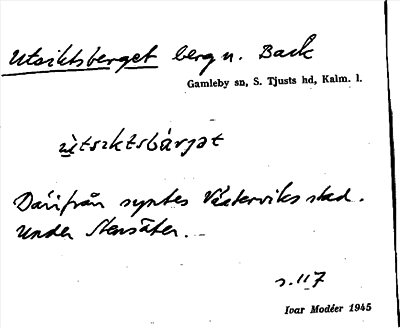 Utsiktsberget berg n. Back
Gamleby sn, S. Tjusts hd, Kalm. l.
ùtsɩktsbárjət
Därifrån syntes Västerviks stad.
Under Stensäter.
s. 117
Ivar Modéer 1945